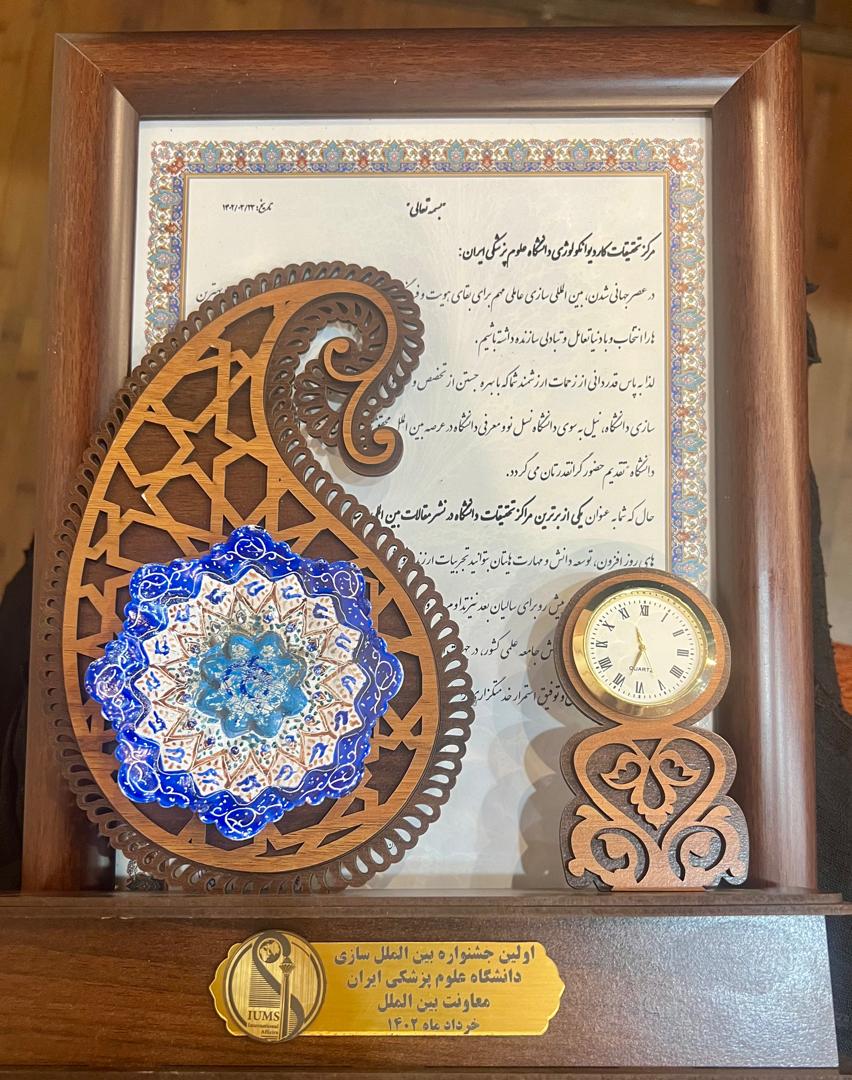 بسمه تعالی
تاریخ: ۱۴۰۲/۰۳/۲۳
مرکز تحقیقات کاردیوانکولوژی دانشگاه علوم پزشکی ایران:
در عصر جهانی شدن، بین المللی سازی عاملی مهم برای بقای هویت و
ها را انتخاب و با دنیا تعامل و تبادلی سازنده داشته باشیم.
لذا به پاس قدردانی از زحمات ارزشمند شما که با بهره جستن از تخصص و
سازی دانشگاه، نیل به سوی دانشگاه نسل نو و معرفی دانشگاه در عرصه بین الملل
دانشگاه" تقدیم حضور گرانقدرتان می گردد.
حال که شما به عنوان یکی از برترین مراکز تحقیقات دانشگاه در نشر مقالات بین
های روز افزون، توسعه دانش و مهارت هایتان بتوانید تجربیات
رو برای سالیان بعد نیز
جامعه علمی کشور، در
و توفیق استمرار خدمتگزاری
XII
I
II
III
IIII
V
VI
VII
VIII
IX
X
XI
QUARTZ
اولین جشنواره بین الملل سازی
دانشگاه علوم پزشکی ایران
معاونت بین الملل
خرداد ماه ۱۴۰۲
IUMS
International
Affairs